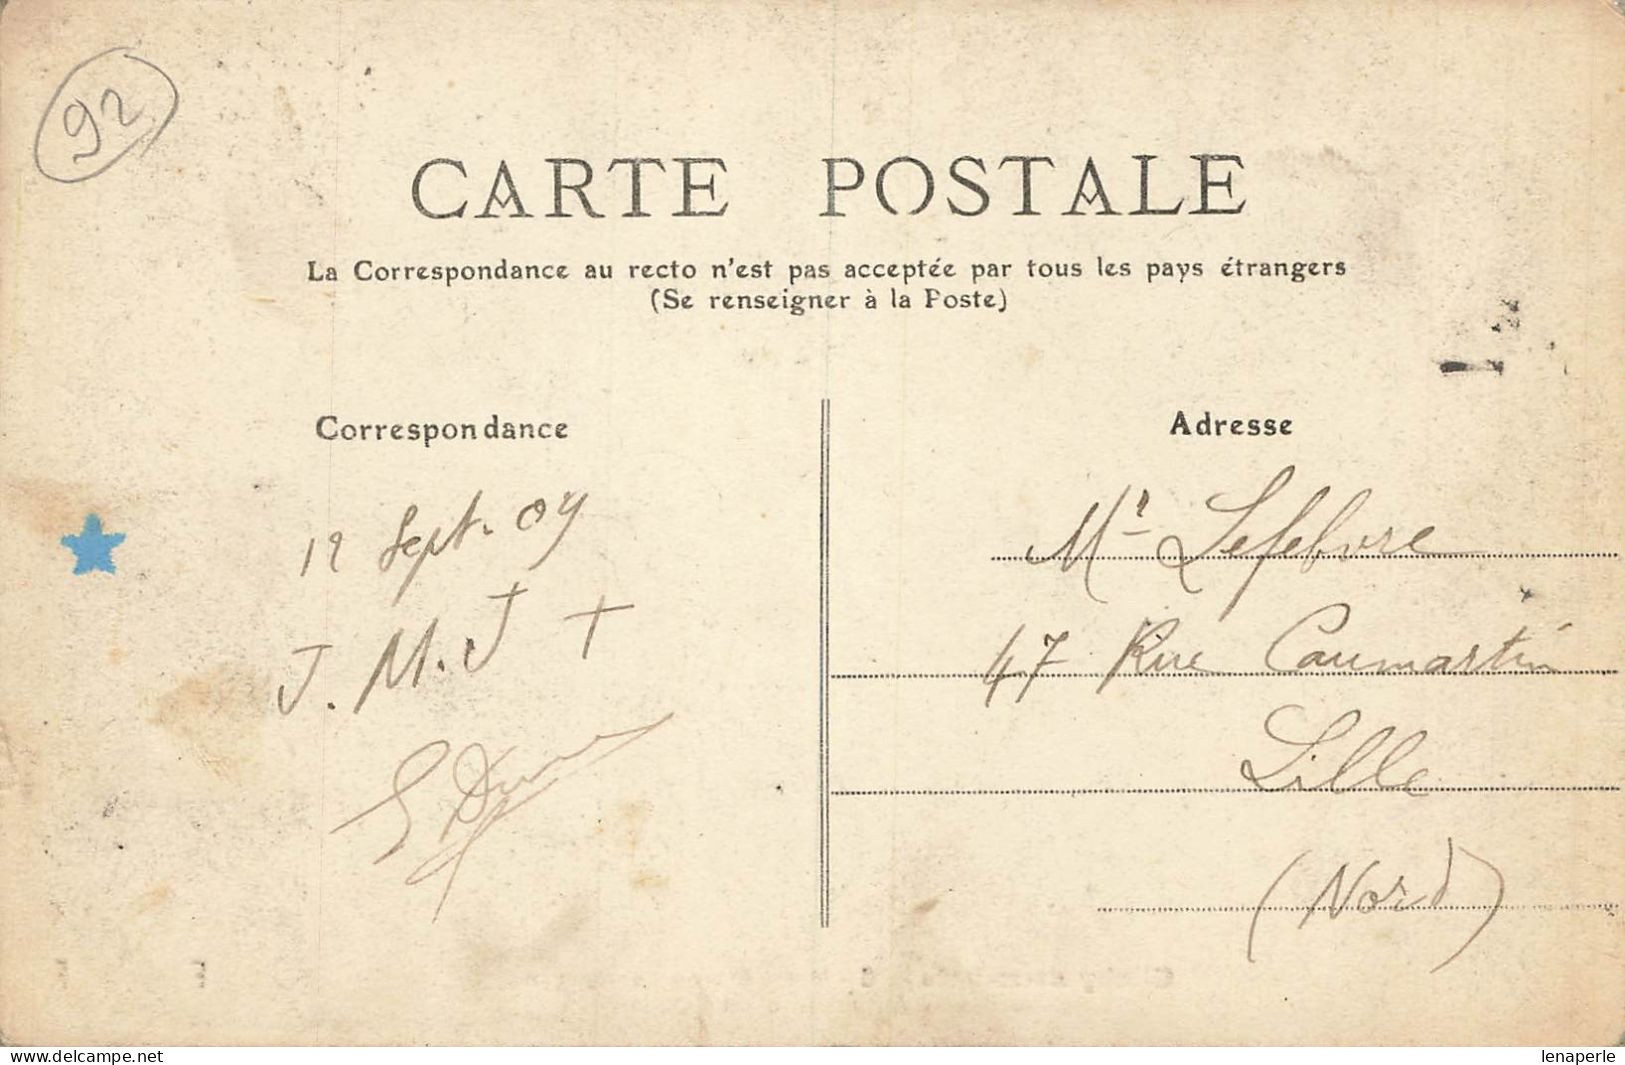 92
CARTE POSTALE
La Correspondance au recto n'est pas acceptée par tous les pays étrangers
(Se renseigner à la Poste)
Correspondance
12 Sept. 09
J. M. J +
Adresse
Mr Lefebvre
47 Rue Caumartin
Lille
(Nord)
www.delcampe.net
lenaperle